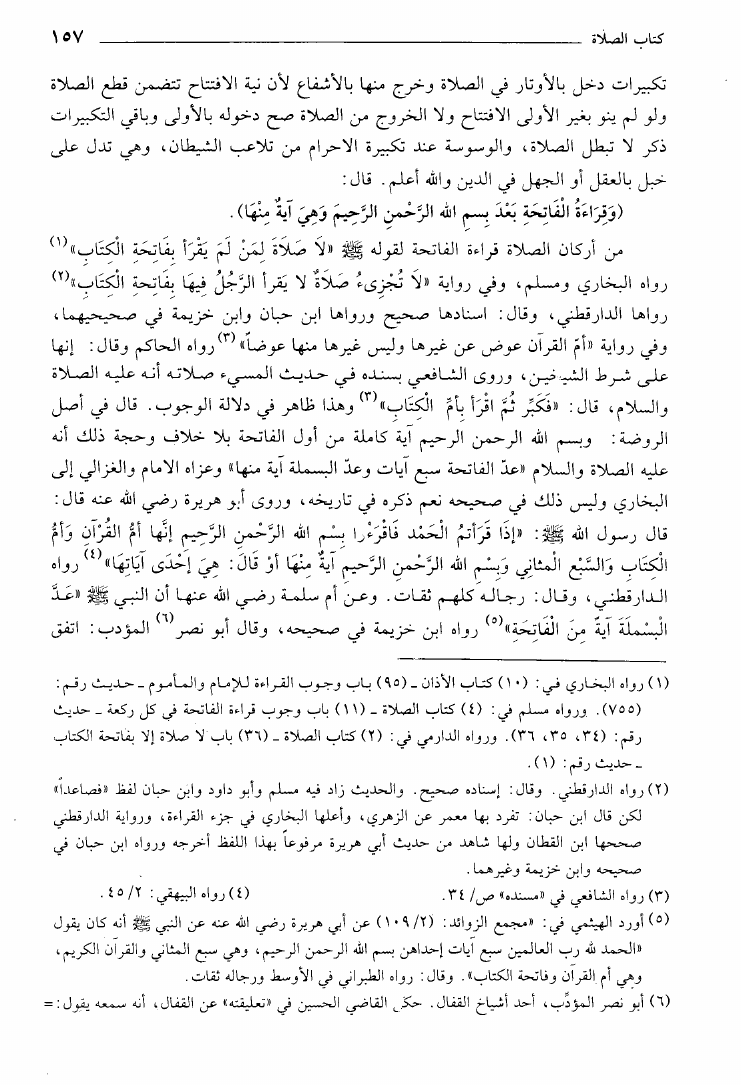 كتاب الصلاة ١٥٧
تكبيرات دخل بالأوتار في الصلاة وخرج منها بالأشفاع لأن نية الافتتاح تتضمن قطع الصلاة
ولو لم ينو بغير الأولى الافتتاح ولا الخروج من الصلاة صح دخوله بالأولى وباقي التكبيرات
ذكر لا تبطل الصلاة، والوسوسة عند تكبيرة الاحرام من تلاعب الشيطان، وهي تدل على
خبل بالعقل أو الجهل في الدين والله أعلم. قال:
(وَقِرَاءَةُ الْفَاتِحَةِ بَعْدَ بِسمِ الله الرَّحْمنِ الرَّحِيمَ وَهِيَ آيَةٌ مِنْهَا).
من أركان الصلاة قراءة الفاتحة لقوله ﷺ «لَا صَلَاةَ لِمَنْ لَمْ يَقْرَأ بِفَاتِحَةِ الْكِتَابِ»(١)
رواه البخاري ومسلم، وفي رواية «لَا تُجْزِىءُ صَلَاةٌ لا يَقرأ الرَّجُلُ فِيهَا بِفَاتِحَةِ الْكِتَابِ»(٢)
رواها الدارقطني، وقال: اسنادها صحيح ورواها ابن حبان وابن خزيمة في صحيحيهما،
وفي رواية «أمّ القرآن عوض عن غيرها وليس غيرها منها عوضاً»(٣) رواه الحاكم وقال: إنها
على شرط الشيخين، وروى الشافعي بسنده في حديث المسيء صلاته أنه عليه الصلاة
والسلام، قال: «فَكَبِّر ثُمَّ اقْرَأ بِأمِّ الْكِتَابِ»(٣) وهذا ظاهر في دلالة الوجوب. قال في أصل
الروضة: وبسم الله الرحمن الرحيم آية كاملة من أول الفاتحة بلا خلاف وحجة ذلك أنه
عليه الصلاة والسلام «عدّ الفاتحة سبع آيات وعدّ البسملة آية منها» وعزاه الامام والغزالي إلى
البخاري وليس ذلك في صحيحه نعم ذكره في تاريخه، وروى أبو هريرة رضي الله عنه قال:
قال رسول الله ﷺ: «إذَا قَرَأتمُ الْحَمْد فَاقْرَءُوا بِسْم الله الرَّحْمنِ الرَّحِيم إنَّها أمُّ القُرْآنِ وَأمُّ
الْكِتَابِ وَالسَّبْع الْمثانِي وَبِسْم الله الرَّحْمنِ الرَّحيمِ آيَةٌ مِنْهَا أوْ قَالَ: هِيَ إحْدَى آيَاتِهَا»(٤) رواه
الدارقطني، وقال: رجاله كلهم ثقات. وعن أم سلمة رضي الله عنها أن النبي ﷺ «عَدَّ
الْبَسْملَةَ آيَةً مِنَ الْفَاتِحَةِ»(٥) رواه ابن خزيمة في صحيحه، وقال أبو نصر(٦) المؤدب: اتفق
(١) رواه البخاري في: (١٠) كتاب الأذان ـ (٩٥) باب وجوب القراءة للإمام والمأموم ـ حديث رقم:
(٧٥٥). ورواه مسلم في: (٤) كتاب الصلاة ـ (١١) باب وجوب قراءة الفاتحة في كل ركعة ـ حديث
رقم: (٣٤، ٣٥، ٣٦). ورواه الدارمي في: (٢) كتاب الصلاة ـ (٣٦) باب لا صلاة إلا بفاتحة الكتاب
ـ حديث رقم: (١).
(٢) رواه الدارقطني. وقال: إسناده صحيح. والحديث زاد فيه مسلم وأبو داود وابن حبان لفظ «فصاعداً»
لكن قال ابن حبان: تفرد بها معمر عن الزهري، وأعلها البخاري في جزء القراءة، ورواية الدارقطني
صححها ابن القطان ولها شاهد من حديث أبي هريرة مرفوعاً بهذا اللفظ أخرجه ورواه ابن حبان في
صحيحه وابن خزيمة وغيرهما.
(٣) رواه الشافعي في «مسنده» ص/ ٣٤. (٤) رواه البيهقي: ٢/ ٤٥.
(٥) أورد الهيثمي في: «مجمع الزوائد: (٢/ ١٠٩) عن أبي هريرة رضي الله عنه عن النبي ﷺ أنه كان يقول
«الحمد لله رب العالمين سبع آيات إحداهن بسم الله الرحمن الرحيم، وهي سبع المثاني والقرآن الكريم،
وهي أم القرآن وفاتحة الكتاب». وقال: رواه الطبراني في الأوسط ورجاله ثقات.
(٦) أبو نصر المؤدِّب، أحد أشياخ القفال. حكى القاضي الحسين في «تعليقته» عن القفال، أنه سمعه يقول: =